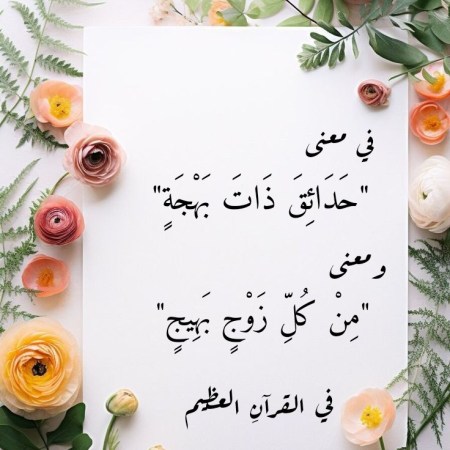 في معنى
"حَدَائِقَ ذَاتَ بَهْجَةٍ"
ومعنى
"مِنْ كُلِّ زَوْجٍ بَهِيجٍ"
في القرآنِ العظيم